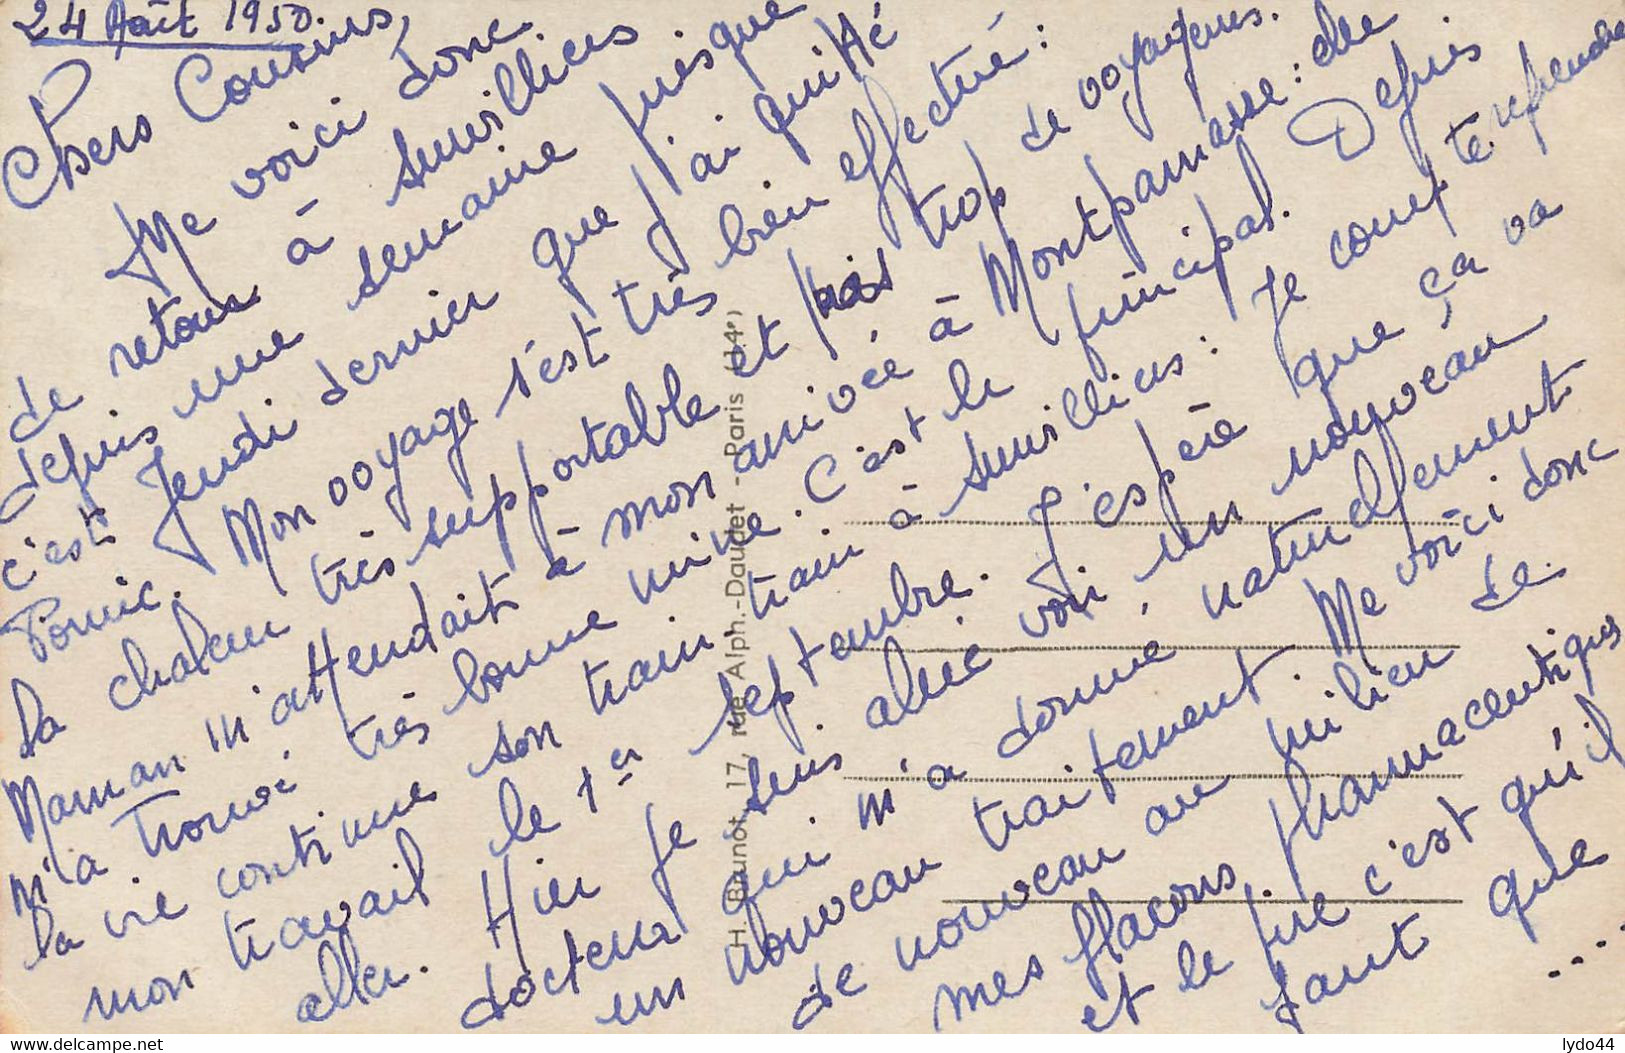 24 Août 1950.
Chers Cousins,
Me voici donc
de retour à Survilliers
depuis une semaine presque
c'est Jeudi dernier que j'ai quitté
Pornic. Mon voyage s'est très bien effectué :
la chaleur très supportable et pas trop de voyageurs.
Maman m'attendait à mon arrivée à Montparnasse : elle
m'a trouvé très bonne mine. C'est le principal. Depuis
la vie continue son train train à Survilliers : Je compte reprendre
mon travail le 1er septembre. J'espère que ça va
aller. Hier je suis allée voir un nouveau
docteur qui m'a donné, naturellement
un nouveau traitement. Me voici donc
de nouveau au milieu de
mes flacons pharmaceutiques
et le pire c'est qu'il
faut que
....
H. Baunot, 17, rue Alph.-Daudet - Paris (14e)
delcampe.net
lydo44